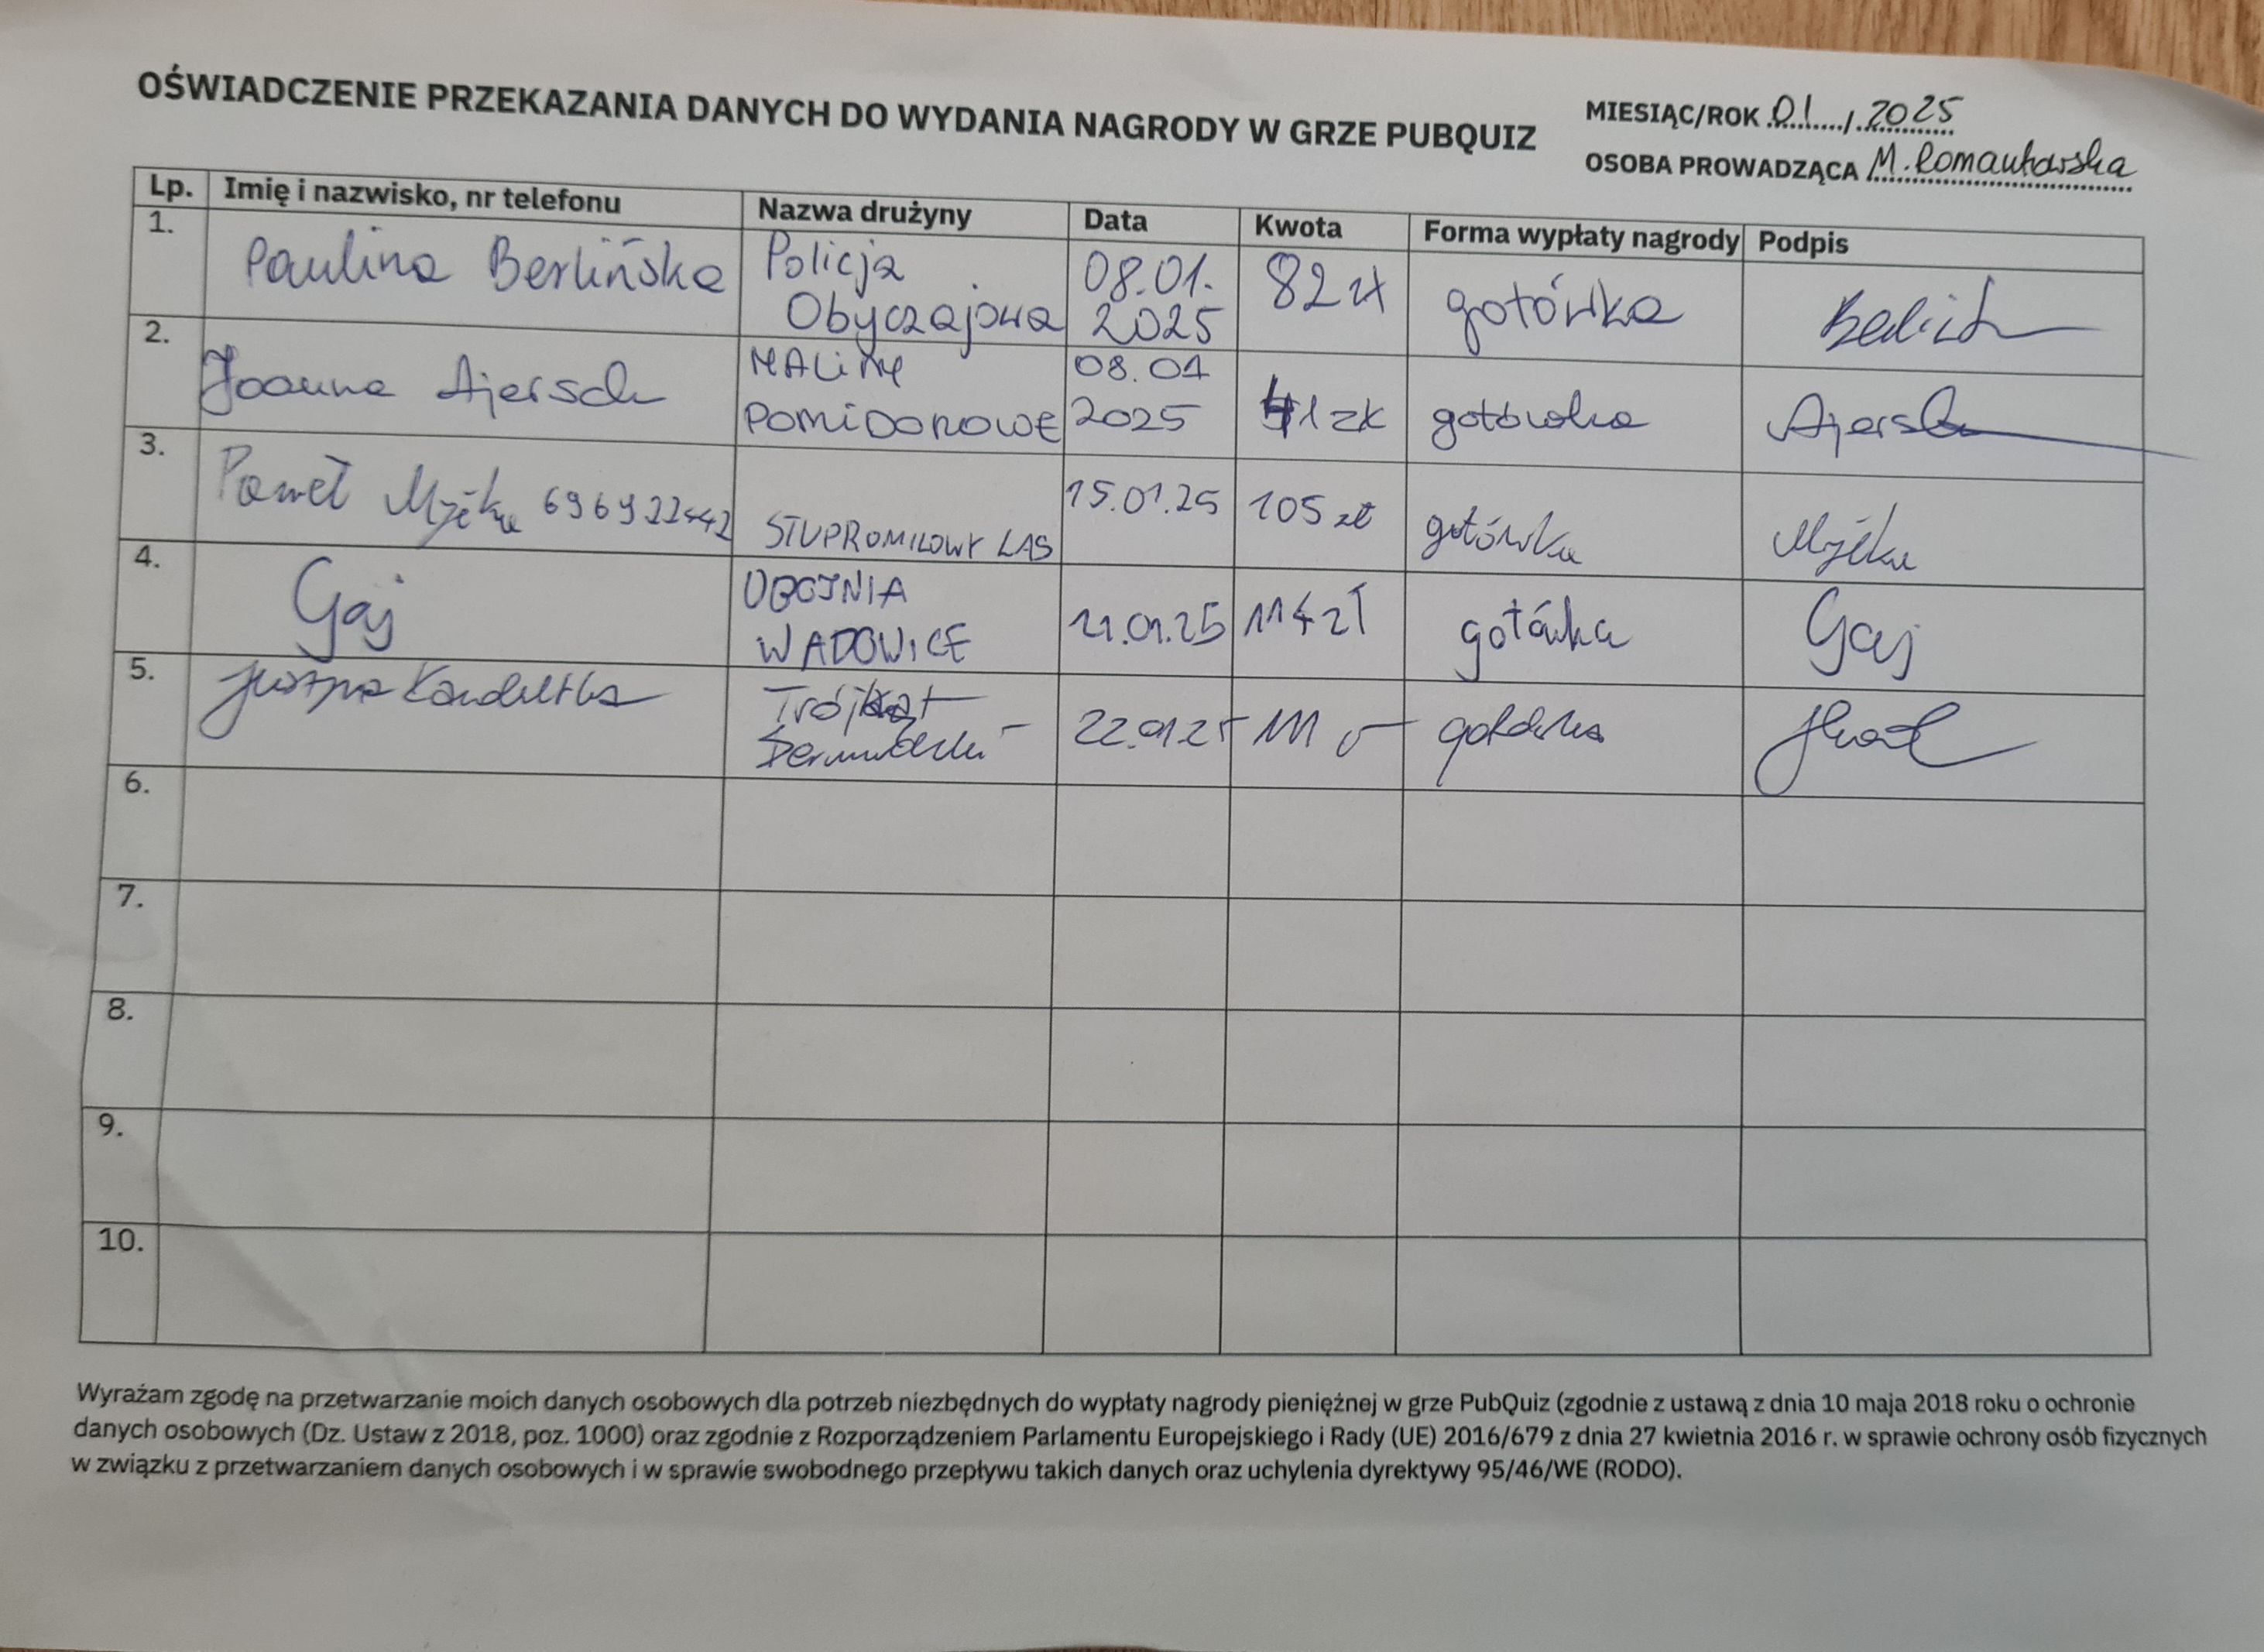 OŚWIADCZENIE PRZEKAZANIA DANYCH DO WYDANIA NAGRODY W GRZE PUBQUIZ
MIESIĄC/ROK 01 / 2025
OSOBA PROWADZĄCA M. Romankowska
Lp. Imię i nazwisko, nr telefonu Nazwa drużyny Data Kwota Forma wypłaty nagrody Podpis
1. Paulina Berlińska Policja Obyczajowa 08.01. 2025 82 zł gotówka
2. Joanna Ajersch MALINY POMIDOROWE 08.01 2025 41 zł gotówka Ajersch
3. Paweł 696922442 STUPROMILOWY LAS 15.01.25 105 zł gotówka
4. Gaj UBOJNIA WADOWICE 21.01.25 114 zł gotówka Gaj
5. Justyna Trójkąt 22.01.25 111 gotówka
6.
7.
8.
9.
10.
Wyrażam zgodę na przetwarzanie moich danych osobowych dla potrzeb niezbędnych do wypłaty nagrody pieniężnej w grze PubQuiz (zgodnie z ustawą z dnia 10 maja 2018 roku o ochronie
danych osobowych (Dz. Ustaw z 2018, poz. 1000) oraz zgodnie z Rozporządzeniem Parlamentu Europejskiego i Rady (UE) 2016/679 z dnia 27 kwietnia 2016 r. w sprawie ochrony osób fizycznych
w związku z przetwarzaniem danych osobowych i w sprawie swobodnego przepływu takich danych oraz uchylenia dyrektywy 95/46/WE (RODO).